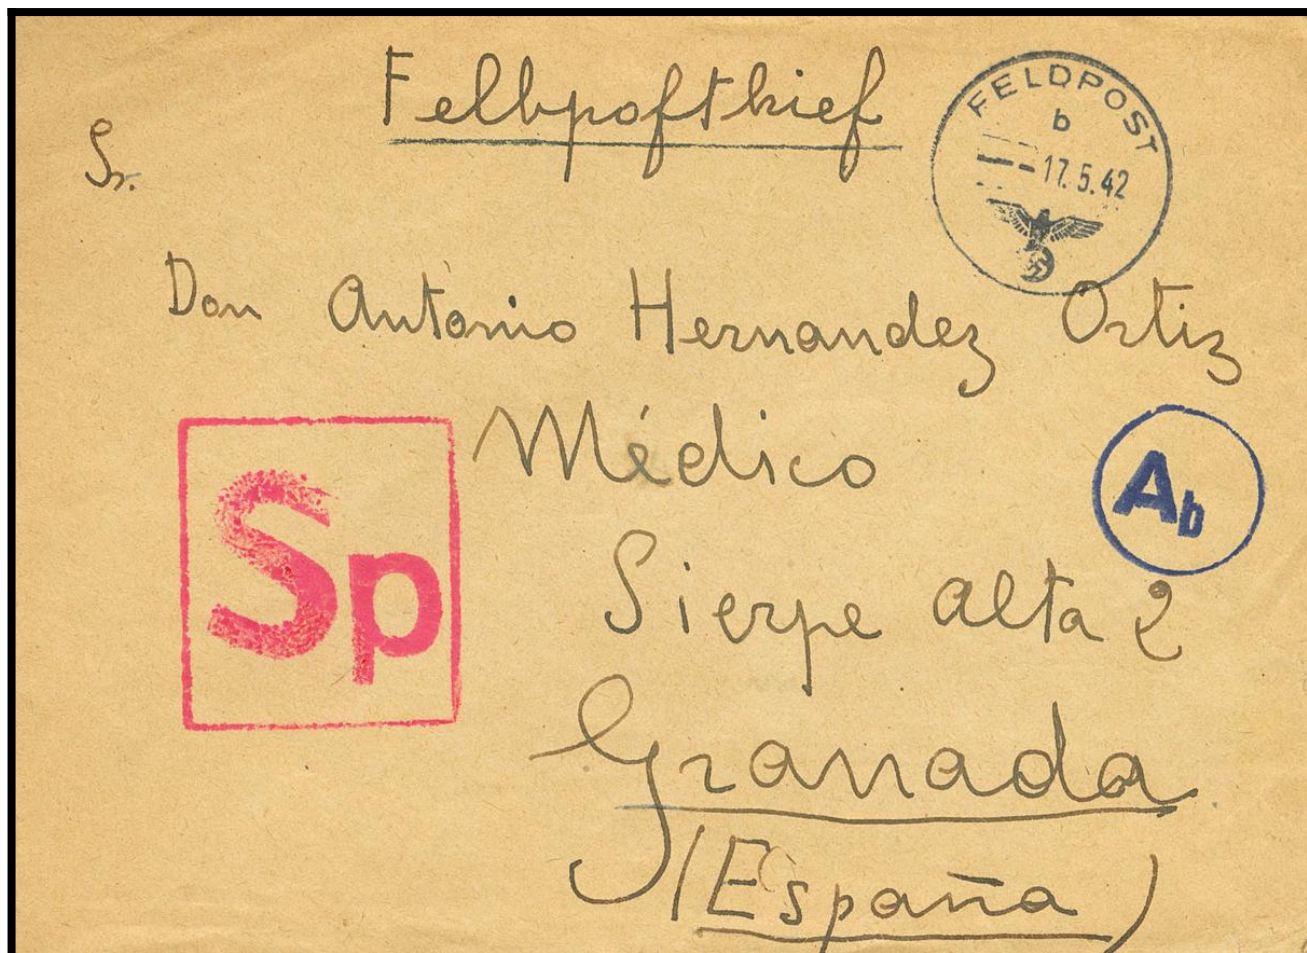 Felbpoftbief
FELDPOST
b
17.5.42
Sr.
Don Antonio Hernandez Ortiz
Médico
Sp
Ab
Sierpe alta 2
Granada
(España)